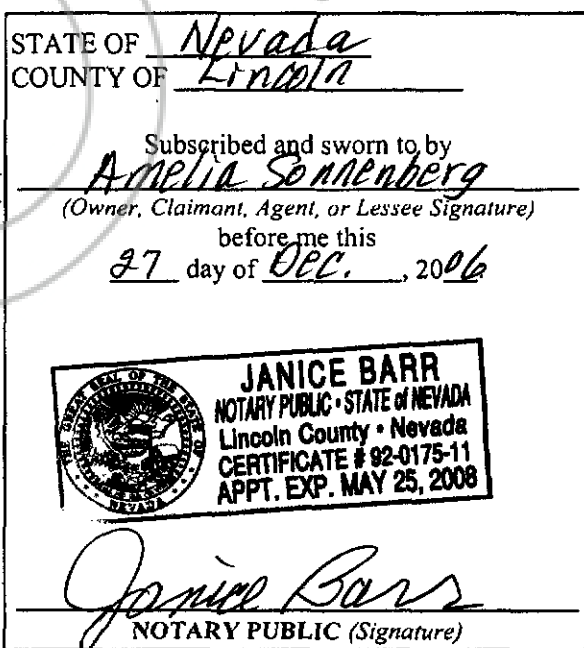 STATE OF Nevada
COUNTY OF Lincoln
Subscribed and sworn to by
Amelia Sonnenberg
(Owner, Claimant, Agent, or Lessee Signature)
before me this
27 day of Dec. , 2006
THE GREAT SEAL OF THE STATE OF NEVADA
JANICE BARR
NOTARY PUBLIC • STATE of NEVADA
Lincoln County • Nevada
CERTIFICATE # 92-0175-11
APPT. EXP. MAY 25, 2008
Janice Barr
NOTARY PUBLIC (Signature)